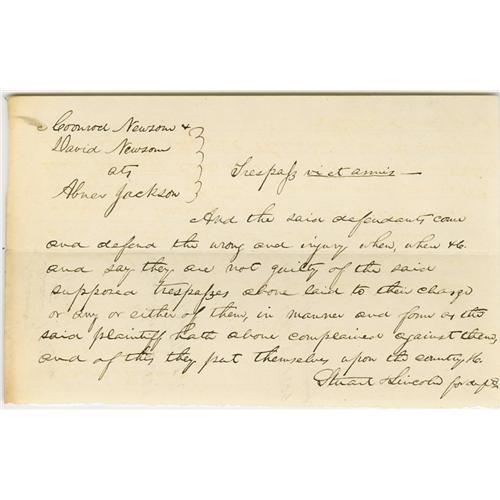 Coonrod Newsom &
David Newsom
ats
Abner Jackson
Trespass vi et armis —
And the said defendants come
and defend the wrong and injury when, where &c.
and say they are not guilty of the said
supposed trespasses above laid to their charge
or any or either of them, in manner and form as the
said plaintiff hath above complained against them,
and of this they put themselves upon the country &c.
Stuart & Lincoln for defts